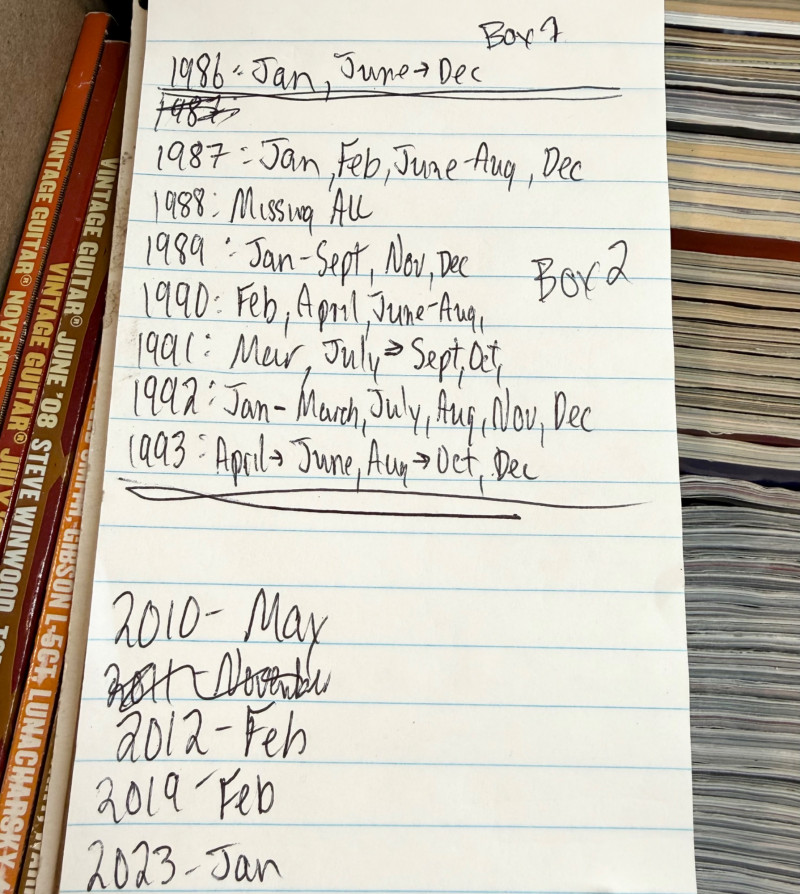 Box 1
1986: Jan, June→Dec
1987
1987: Jan, Feb, June-Aug, Dec
1988: Missing All
1989: Jan-Sept, Nov, Dec
Box 2
1990: Feb, April, June-Aug,
1991: Mar, July→Sept, Oct,
1992: Jan-March, July, Aug, Nov, Dec
1993: April→June, Aug→Oct, Dec
2010- May
2011- November
2012- Feb
2019- Feb
2023- Jan
VINTAGE GUITAR® NOVEMBER
VINTAGE GUITAR® JULY
VINTAGE GUITAR® JUNE '08 STEVE WINWOOD
GIBSON L-5CT, LUNACHARSKY